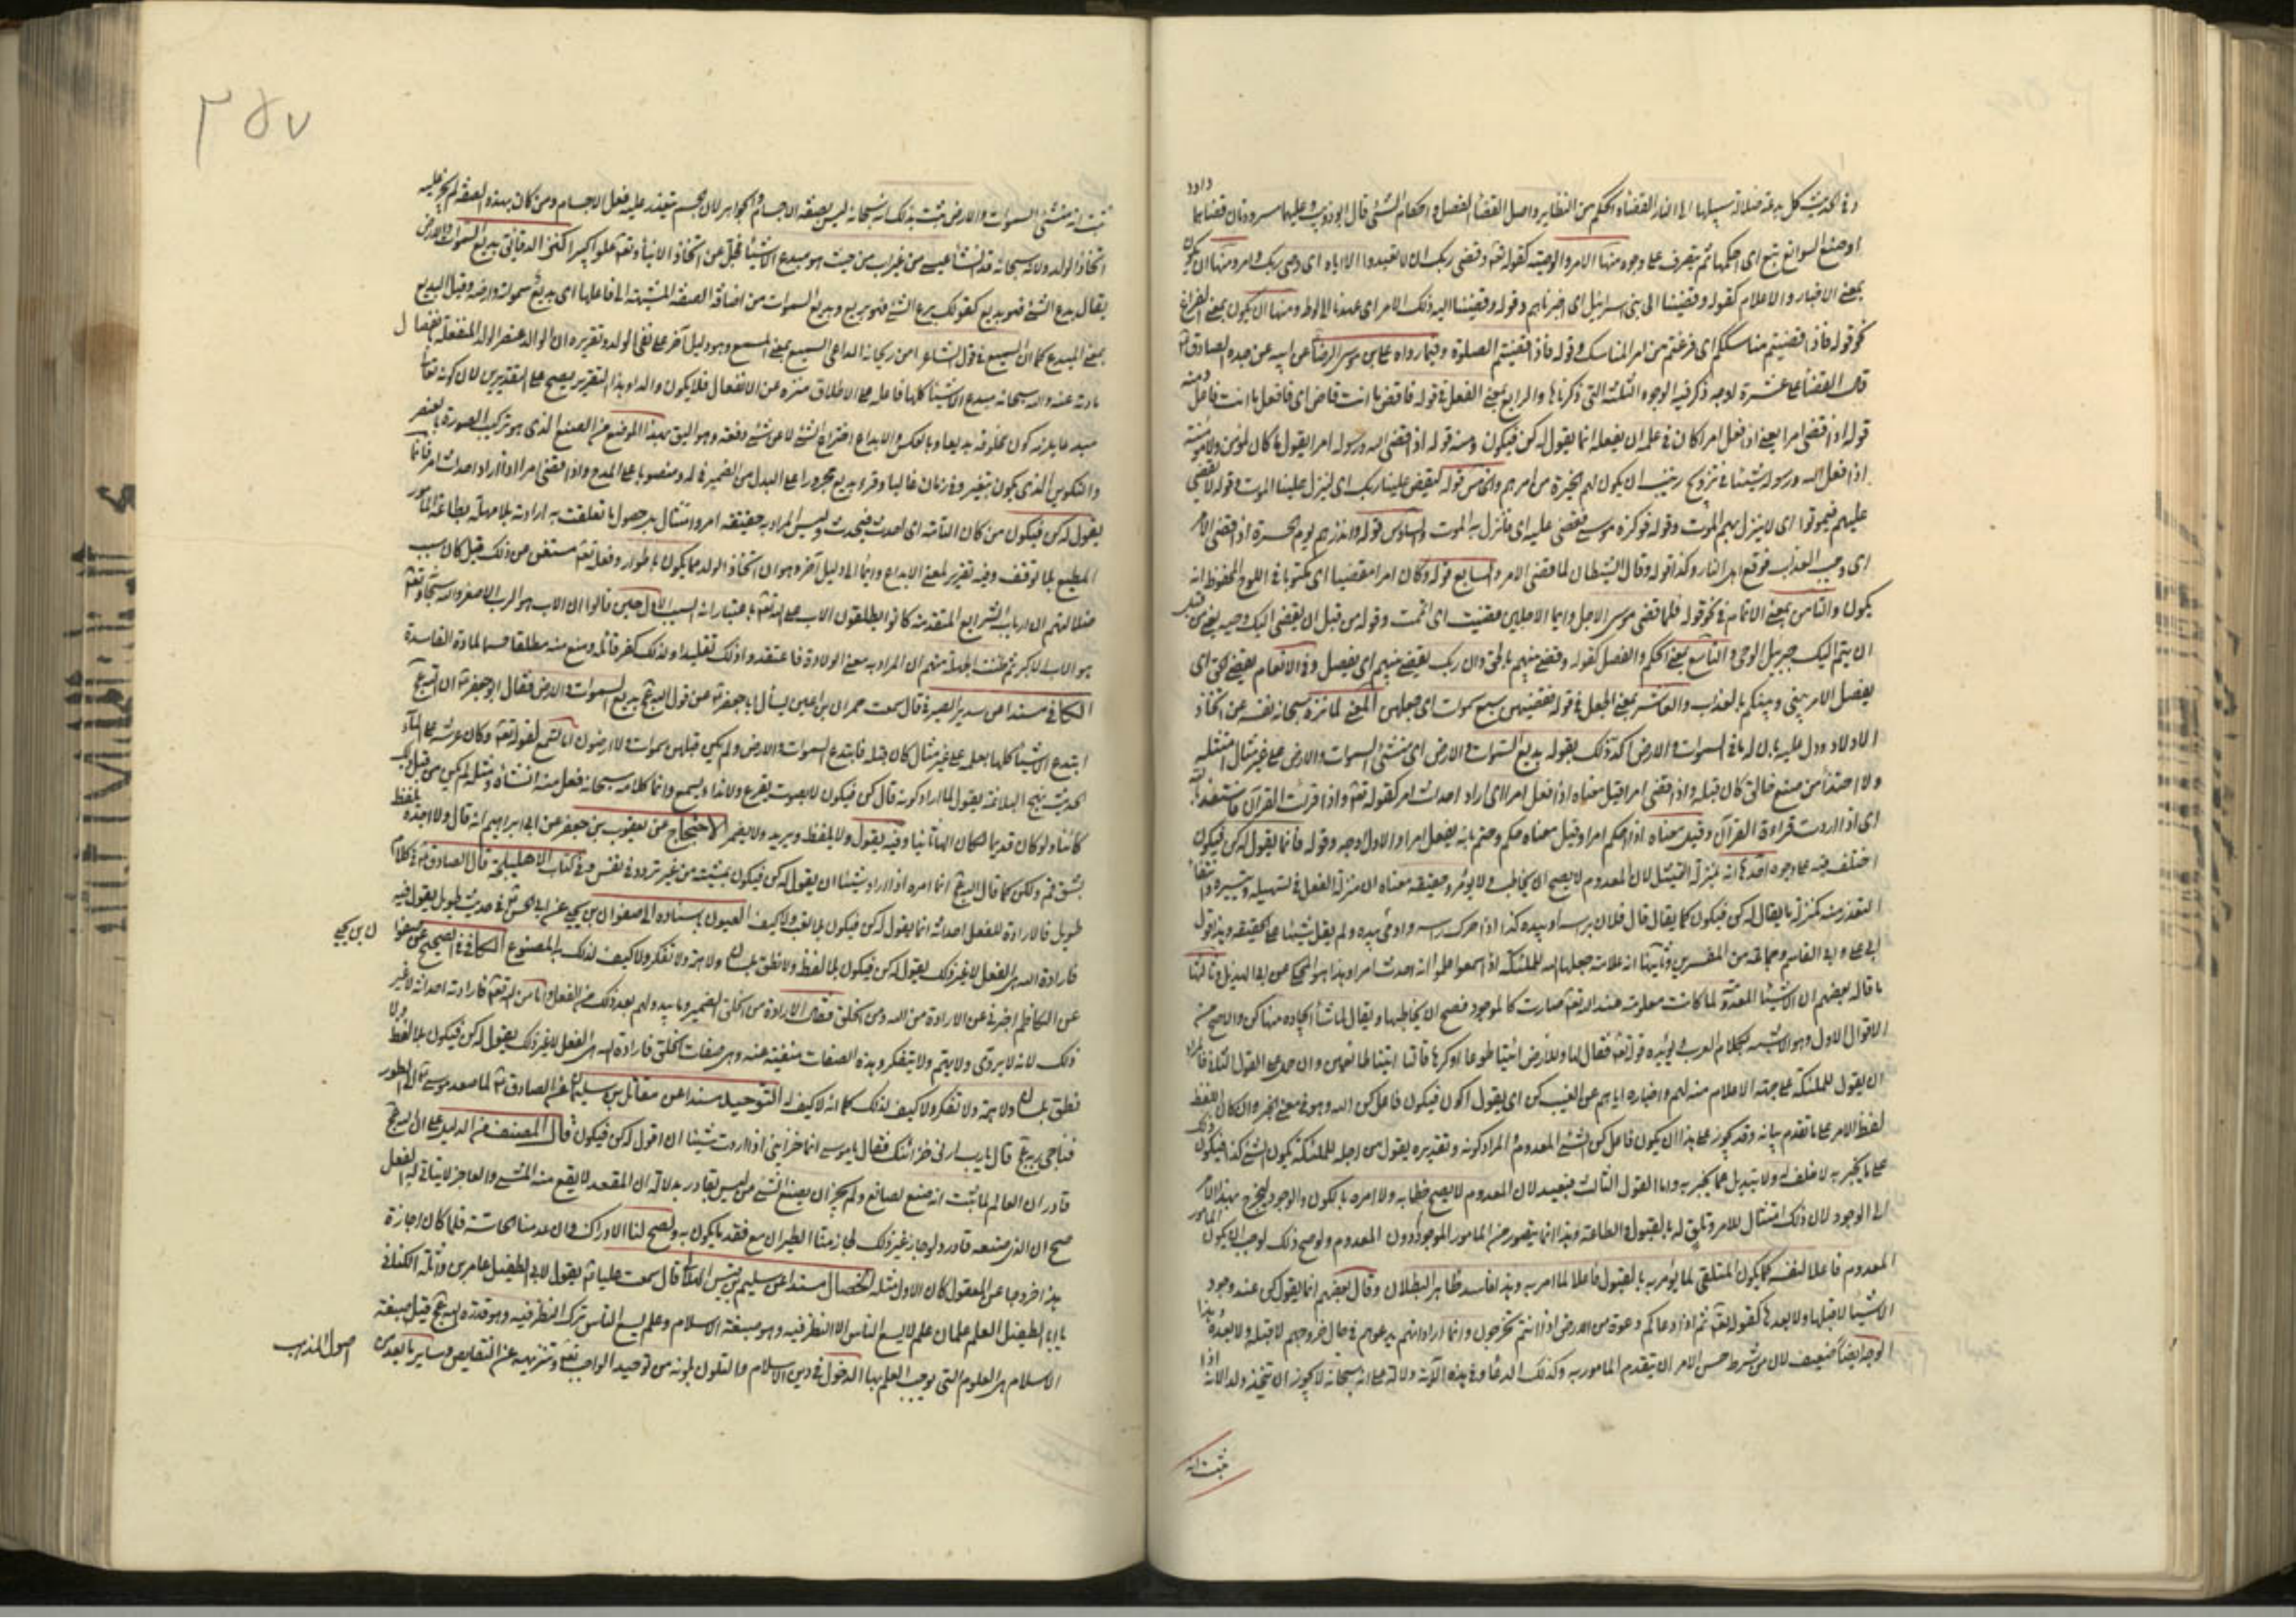 وفي الحديث كل بدعة ضلالة سبيلها الى النار القضاء والحكم من النظاير واصل القضاء الفصل واحكام الشئ قال ابو ذويب وعليهما مسرودتان قضاهما
داود
او صنع السوابغ تبع اى احكمهما ثم يتصرف على وجوه منها الامر والوصية كقوله تعه وقضى ربك ان لا تعبدوا الا اياه اى وصى ربك وامر ومنها ان يكون
بمعنى الاخبار والاعلام كقوله وقضينا الى بنى اسرائيل اى اخبرناهم وقوله وقضينا اليه ذلك الامر اى عهدنا الى لوط ومنها ان يكون بمعنى الفراغ
نحو قوله فاذا قضيتم مناسككم اى فرغتم من امر المناسك وقوله فاذا قضيتم الصلوة وفيما رواه على بن موسى الرضا عن ابيه عن جده الصادق
قال القضاء على عشرة اوجه ذكر فيه الوجوه الثلثة التى ذكرناها والرابع بمعنى الفعل فى قوله فاقض ما انت قاض اى فافعل ما انت فاعل ومنه
قوله اذا قضى امرا يعنى اذا فعل امرا كان فى علمه ان يفعله انما يقول له كن فيكون ومنه قوله اذا قضى الله ورسوله امرا يقول ما كان لمؤمن ولا مؤمنة
اذا فعل الله ورسوله شيئا فى تزويج زينب ان يكون لهم الخيرة من امرهم والخامس قوله ليقض علينا ربك اى لينزل علينا الموت وقوله لا يقضى
عليهم فيموتوا اى لا ينزل بهم الموت وقوله فوكزه موسى فقضى عليه اى فانزل به الموت والسادس قوله وانذرهم يوم الحسرة اذ قضى الامر
اى وجب العذاب فوقع باهل النار وكذا قوله وقال الشيطان لما قضى الامر والسابع قوله وكان امرا مقضيا اى مكتوبا فى اللوح المحفوظ انه
يكون والثامن بمعنى الاتمام فى نحو قوله فلما قضى موسى الاجل وايما الاجلين قضيت اى اتممت وقوله من قبل ان يقضى اليك وحيه يعنى من قبل
ان يتم اليك جبريل الوحى والتاسع بمعنى الحكم والفصل كقوله وقضى بينهم بالحق وان ربك يقضى بينهم اى يفصل وفى الانعام يقضى الحق اى
يفصل الامر بينى وبينكم بالعذاب والعاشر بمعنى الجعل فى قوله فقضيهن سبع سموات اى جعلهن المعنى لما نزه سبحانه نفسه عن اتخاذ
الاولاد ودل عليه بان له ما فى السموات والارض اكد ذلك بقوله بديع السموات والارض اى منشئ السموات والارض على غير مثال امتثله
ولا احتذاء من صنع خالق كان قبله واذا قضى امرا قيل معناه اذا فعل امرا اى اراد احداث امر كقوله تعه واذا قرات القران فاستعذ بالله
اى اذا اردت قراءة القران وقيل معناه اذا احكم امرا وقيل معناه حكم وحتم بانه يفعل امرا والاول اوجه وقوله فانما يقول له كن فيكون
اختلف فيه على وجوه احدها انه بمنزلة التمثيل لان المعدوم لا يصح ان يخاطب ولا يؤمر وحقيقة معناه ان منزلة الفعل فى تسهيله وتيسره وانتفاء
التعذر منه كمنزلة ما يقال له كن فيكون كما يقال قال فلان براسه او بيده كذا اذا حرك راسه واومى بيده ولم يقل شيئا على الحقيقة وهذا قول
ابى على وابى القاسم وجماعة من المفسرين وثانيها انه علامة جعلها الله للملئكة اذا سمعوا علموا انه احدث امرا وهذا هو المحكى عن ابى الهذيل وثالثها
ما قاله بعضهم ان الاشياء المعدومة لما كانت معلومة عند الله تعه صارت كالموجود فصح ان يخاطبها ويقال لما شاء ايجاده منها كن والاصح من
الاقوال الاول وهو الاشبه بكلام العرب ويؤيده قوله تعه فقال لها وللارض ائتيا طوعا او كرها قالتا اتينا طائعين وان حمل على القول الثانى فالمراد
ان يقول للملئكة على جهة الاعلام منه لهم واخباره اياهم عن الغيب كن اى يقول اكون فيكون فاعل كن الله وهو فى معنى الخبر وان كان اللفظ
لفظ الامر على ما تقدم بيانه وقد يجوز على هذا ان يكون فاعل كن الشئ المعدوم المراد كونه وتقديره يقول من اجله للملئكة يكون الشئ كذا فيكون ذلك
على ما يخبر به لا خلف له ولا تبديل عما يخبر به واما القول الثالث فبعيد لان المعدوم لا يصح خطابه ولا امره بالكون والوجود ليخرج بهذا الامر
الى الوجود لان ذلك امتثال للامر وتلق له بالقبول والطاعة وهذا انما يتصور من المامور الموجود دون المعدوم ولو صح ذلك لوجب ان يكون المامور
المعدوم فاعلا لنفسه كما يكون المتلقى لما يؤمر به بالقبول فاعلا لما امر به وهذا فاسد ظاهر البطلان وقال بعضهم انما يقول كن عند وجود
الاشياء لا قبلها ولا بعدها كقوله تعه ثم اذا دعاكم دعوة من الارض اذا انتم تخرجون وانما اراد انه يدعوهم فى حال خروجهم لا قبله ولا بعده وهذا
الوجه ايضا ضعيف لان من شرط حسن الامر ان يتقدم المامور به وكذلك الدعاء وفى هذه الآية دلالة على انه سبحانه لا يجوز ان يتخذ ولدا لانه اذا
ثبت انه
٣٥٧
ثبت انه منشئ السموات والارض ثبت بذلك انه سبحانه ليس بصفة الاجسام والجواهر لان الجسم يتعذر عليه فعل الاجسام ومن كان بهذه الصفة لم يجز عليه
اتخاذ الولد ولانه سبحانه قد انشأ عيسى من غير اب من حيث هو مبدع الاشياء فجل عن اتخاذ الابناء وتعه علوا كبيرا كنز الدقائق بديع السموات والارض
يقال بدع الشئ فهو بديع كقولك برع الشئ فهو بريع وبديع السموات من اضافة الصفة المشبهة الى فاعلها اى بديع سمواته وارضه وقيل البديع
بمعنى المبدع كما ان السميع فى قول الشاعر امن ريحانة الداعى السميع بمعنى المسمع وهو دليل آخر على نفى الولد وتقريره ان الوالد عنصر الولد المنفعل بانفصال
مادته عنه والله سبحانه مبدع الاشياء كلها فاعل على الاطلاق منزه عن الانفعال فلا يكون والدا وهذا التقرير يصح على التقديرين لان كونه تعا
مبدعا يلزمه كون مخلوقه بديعا وبالعكس والابداع اختراع الشئ لا عن شئ دفعة وهو اليق بهذا الموضع من الصنع الذى هو تركيب الصورة بالعنصر
والتكوين الذى يكون بتغير وفى زمان غالبا وقرء بديع مجرورا على البدل من الضمير فى له ومنصوبا على المدح واذا قضى امرا اى اراد احداث امر فانما
يقول له كن فيكون من كان التامة اى احدث فيحدث وليس المراد به حقيقة امر وامتثال بل حصول ما تعلقت به ارادته بلا مهلة بطاعة المامور
المطيع بلا توقف وفيه تقرير لمعنى الابداع وايماء الى دليل آخر وهو ان اتخاذ الولد مما يكون باطوار وفعله تعه مستغن عن ذلك قيل كان سبب
ضلالتهم ان ارباب الشرايع المتقدمة كانوا يطلقون الاب على الله تعه باعتبار انه السبب الاول حتى قالوا ان الاب هو الرب الاصغر والله سبحانه وتعه
هو الاب الاكبر ثم ظنت الجهلة منهم ان المراد به معنى الولادة فاعتقدوا ذلك تقليدا ولذلك كفر قائله ومنع منه مطلقا حسما لمادة الفاسدة
الكافى مسندا عن سدير الصيرفى قال سمعت حمران بن اعين يسأل ابا جعفر عن قول الله عج بديع السموات والارض فقال ابو جعفر ان الله عج
ابتدع الاشياء كلها بعلمه على غير مثال كان قبله فابتدع السموات والارض ولم يكن قبلهن سموات ولا ارضون اما تسمع لقوله تعه وكان عرشه على الماء
الحديث نهج البلاغة يقول لما اراد كونه قال كن فيكون لا بصوت يقرع ولا نداء يسمع وانما كلامه سبحانه فعل منه انشأه ومثله لم يكن من قبل ذلك
كائنا ولو كان قديما لكان الها ثانيا وفيه يقول ولا يلفظ ويريد ولا يضمر الاحتجاج عن يعقوب بن جعفر عن ابى ابراهيم انه قال ولا احده بلفظ
بشق فم ولكن كما قال الله عج انما امره اذا اراد شيئا ان يقول له كن فيكون بمشيته من غير تردد فى نفس وفى كتاب الاهليلجة قال الصادق فى كلام
طويل فالارادة للفعل احداثه انما يقول له كن فيكون بلا تعب ولا كيف العيون باسناده الى صفوان بن يحيى عن ابى الحسن فى حديث طويل يقول فيه
فارادة الله هى الفعل لا غير ذلك يقول له كن فيكون بلا لفظ ولا نطق بلسان ولا همة ولا تفكر ولا كيف لذلك الكافى فى الصحيح عن صفوا
ن بن يحيى
عن الكاظم اخبرنى عن الارادة من الله ومن الخلق فقال الارادة من الخلق الضمير وما يبدو لهم بعد ذلك من الفعل واما من الله تعه فارادته احداثه لا غير
ذلك لانه لا يروى ولا يهم ولا يتفكر وهذه الصفات منفية عنه وهى صفات الخلق فارادة الله هى الفعل لا غير ذلك يقول له كن فيكون بلا لفظ ولا
نطق بلسان ولا همة ولا تفكر ولا كيف لذلك كما انه لا كيف له التوحيد مسندا عن مقاتل بن سليمان عن الصادق لما صعد موسى الى الطور
فناجى ربه عج قال يارب ارنى خزائنك فقال يا موسى انما خزاينى اذا اردت شيئا ان اقول له كن فيكون قال المصنف من الدليل على ان الله عج
قادر ان العالم لما ثبت انه صنع لصانع ولم يجز ان يصنع الشئ من ليس بقادر بدلالة ان المقعد لا يقع منه المشى والعاجز لا يتاتى له الفعل
صح ان الذى صنعه قادر ولو جاز غير ذلك لجاز منا الطيران مع فقد ما يكون به ولصح لنا الادراك وان عدمنا الحاسة فلما كان اجازة
هذا خروجا عن المعقول كان الاول مثله الخصال مسندا عن سليم بن قيس الهلالى قال سمعت عليا يقول لابى الطفيل عامر بن واثلة الكنانى
يا ابا الطفيل العلم علمان علم لا يسع الناس الا النظر فيه وهو صبغة الاسلام وعلم يسع الناس ترك النظر فيه وهو قدرة الله عج قيل صبغة
الاسلام هى العلوم التى يوجب العلم بها الدخول فى دين الاسلام من توحيد الواجب تعه وتنزيهه عن النقايص وساير ما يعد من
اصول المذهب